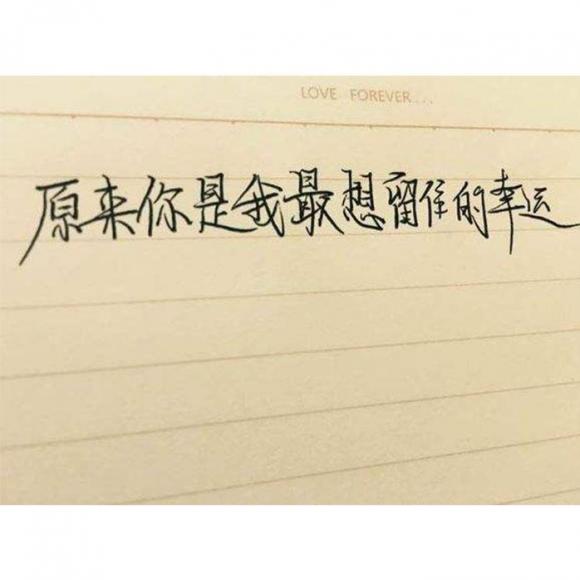 LOVE FOREVER...
原来你是我最想留住的幸运